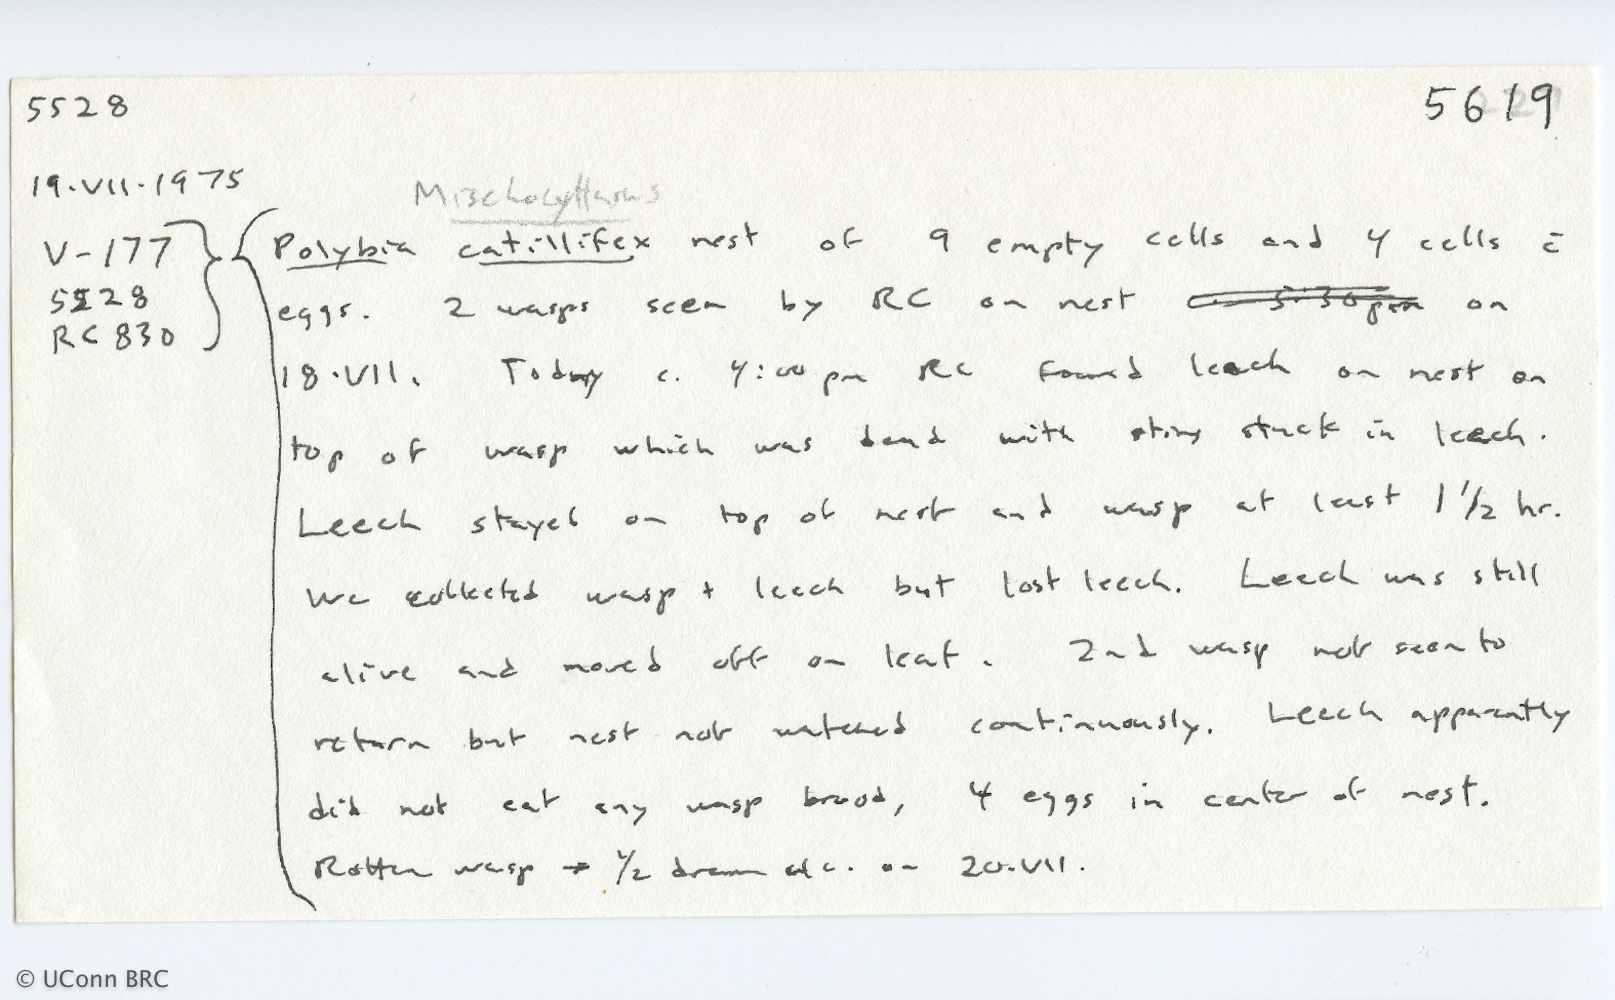 5528
5619
19.VII.1975
Mischocyttarus
V-177
5528
RC 830
Polybia catillifex nest of 9 empty cells and 4 cells c̄
eggs. 2 wasps seen by RC on nest c. 5:30pm on
18.VII. Today c. 4:00 pm RC found leech on nest on
top of wasp which was dead with sting stuck in leech.
Leech stayed on top of nest and wasp at least 1 1/2 hr.
We collected wasp + leech but lost leech. Leech was still
alive and moved off on leaf. 2nd wasp not seen to
return but nest not watched continuously. Leech apparently
did not eat any wasp brood, 4 eggs in center of nest.
Rotten wasp → 1/2 dram alc. on 20.VII.
© UConn BRC